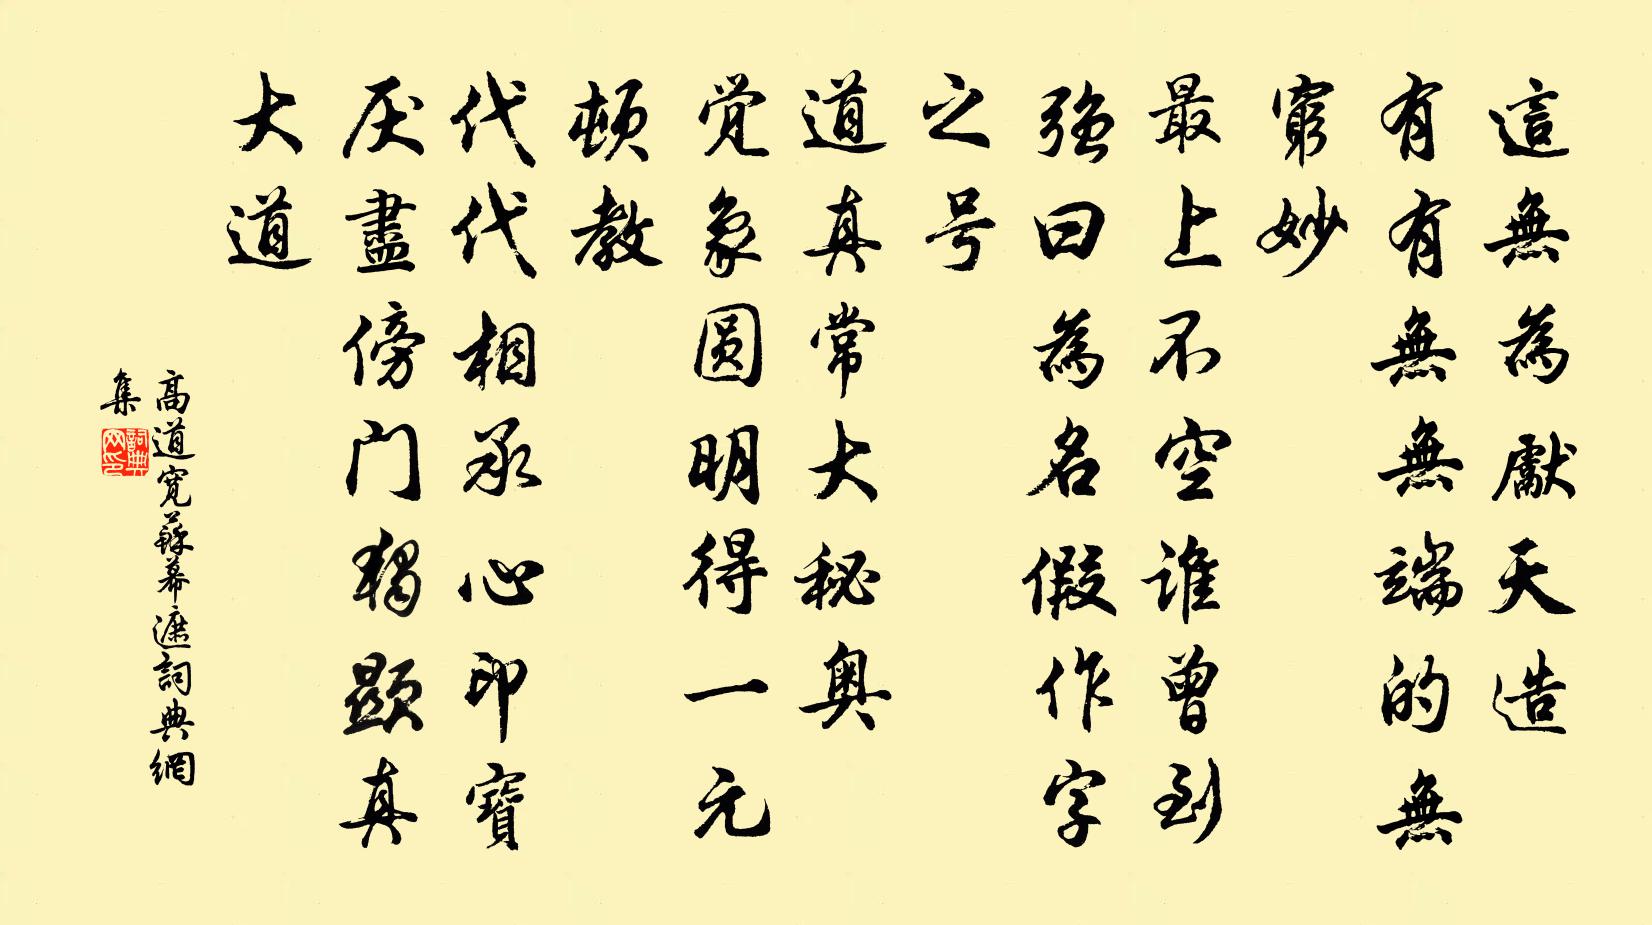 這無為獻天造
有有無無端的無
窮妙
最上不空誰曾到
強曰為名假作字
之号
道真常大秘奧
觉象圆明得一元
頓教
代代相承心印寶
厌盡傍门獨顯真
大道
高道寬蘇幕遮詞典網
集
詞典
网印